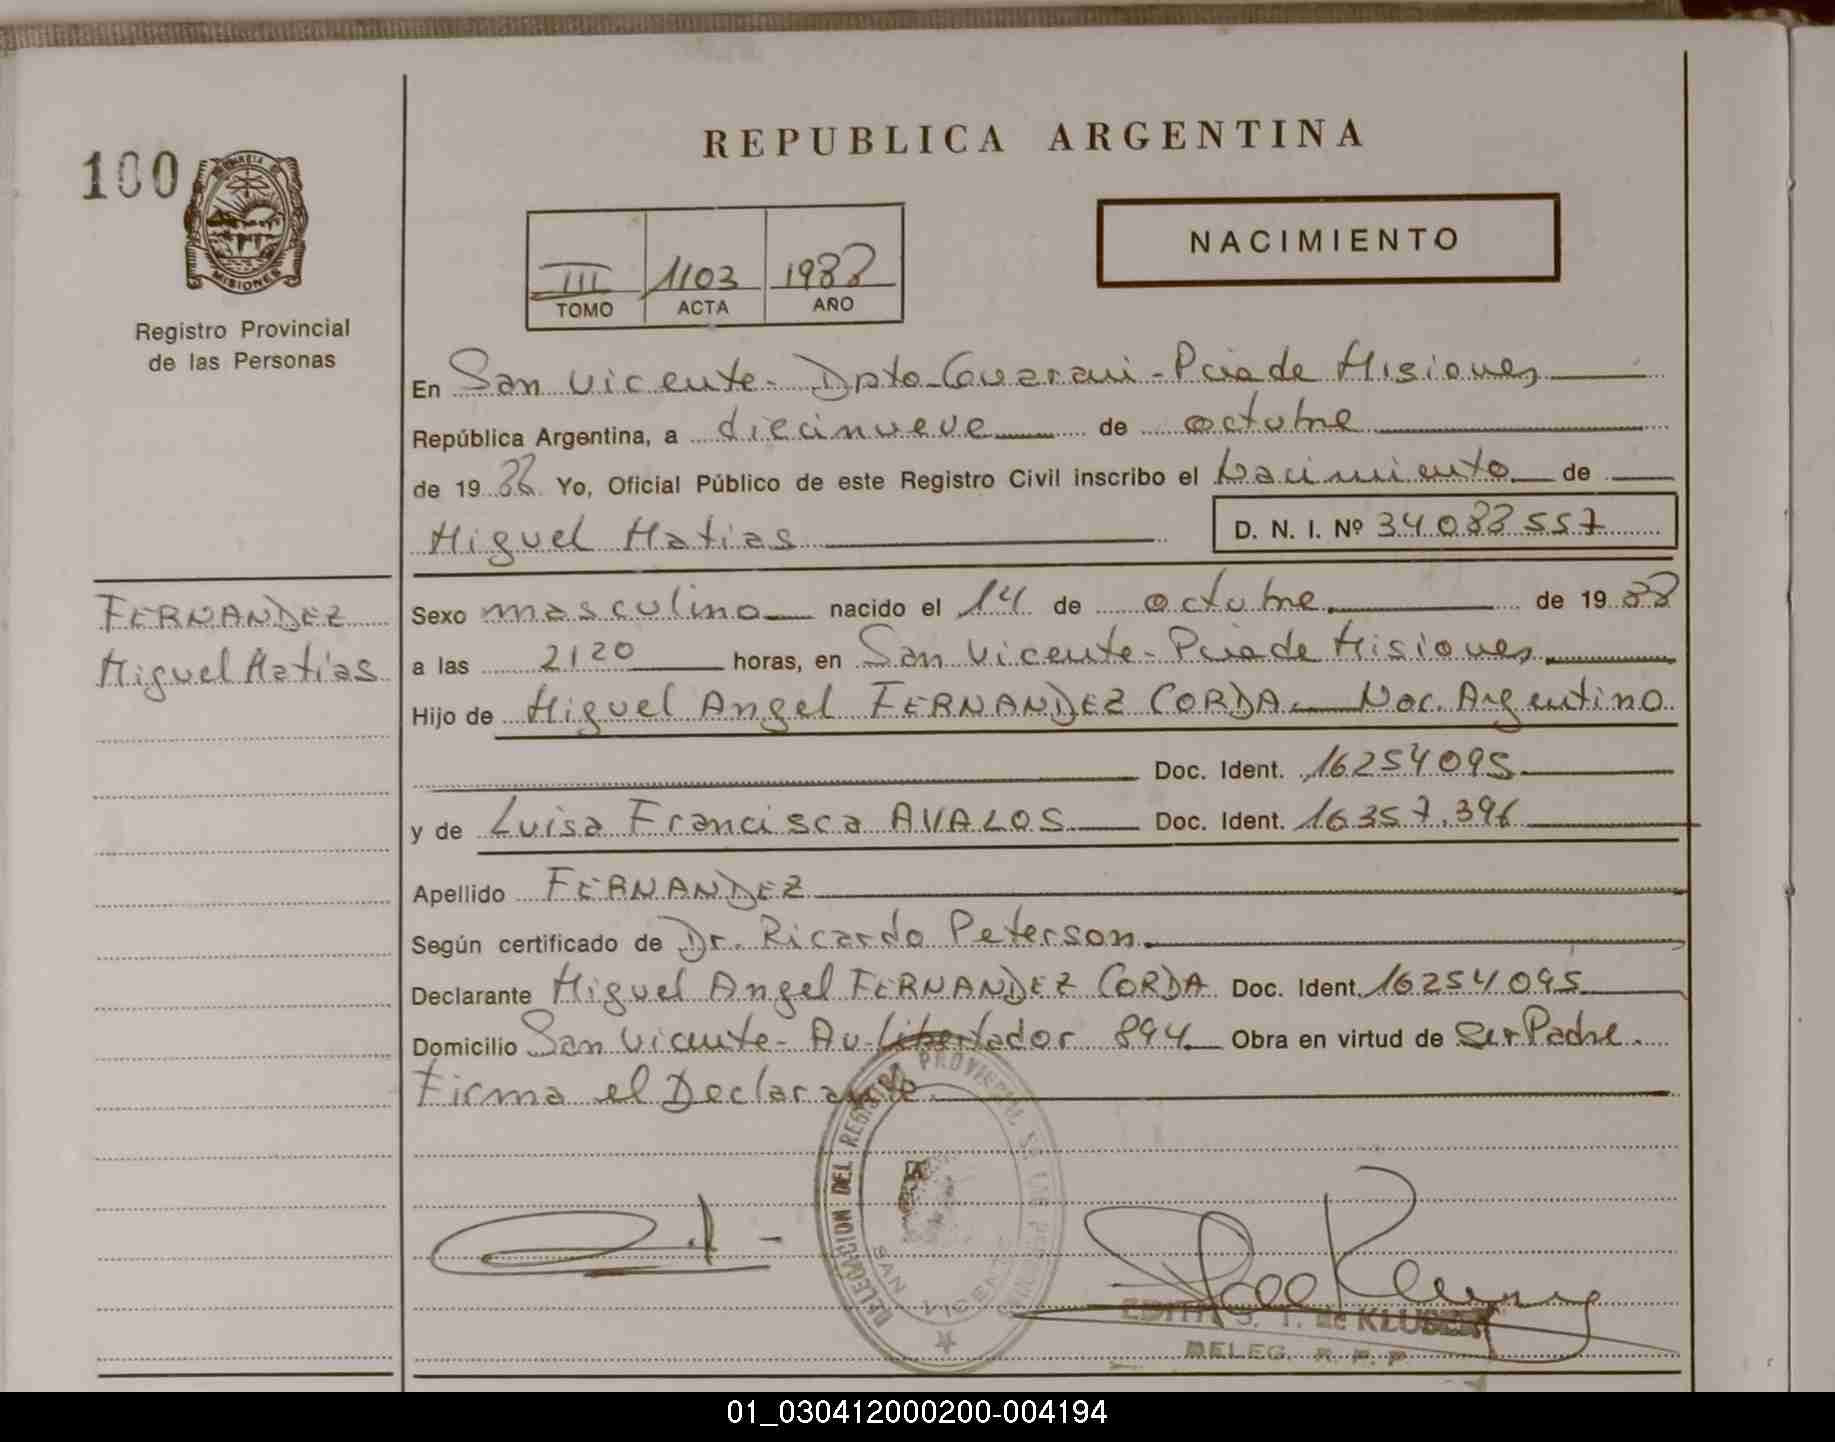 REPUBLICA ARGENTINA
100
MISIONES
Registro Provincial
de las Personas
III 1103 1988
TOMO ACTA AÑO
NACIMIENTO
En San Vicente - Dpto Guarani - Pcia de Misiones
República Argentina, a diecinueve de octubre
de 1988 Yo, Oficial Público de este Registro Civil inscribo el Nacimiento de
Miguel Matias D. N. I. Nº 34.088.557
FERNANDEZ
Miguel Matías
Sexo masculino nacido el 14 de octubre de 1988
a las 2120 horas, en San Vicente - Pcia de Misiones
Hijo de Miguel Angel FERNANDEZ CORDA Nac. Argentino
Doc. Ident. 16254095
y de Luisa Francisca AVALOS Doc. Ident. 16.357.396
Apellido FERNANDEZ
Según certificado de Dr. Ricardo Peterson
Declarante Miguel Angel FERNANDEZ CORDA Doc. Ident. 16254095
Domicilio San Vicente - Av. Libertador 894 Obra en virtud de Ser Padre.
Firma el Declarante.
DELEGACION DEL REGISTRO PROVINCIAL DE LAS PERSONAS
SAN VICENTE
EDITH S. T. de
DELEG. R. P. P.
01_030412000200-004194